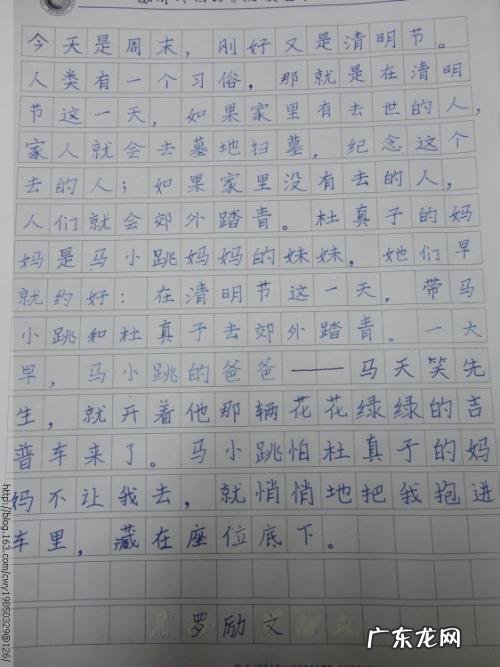 今天是周末，刚好又是清明节。
人类有一个习俗，那就是在清明
节这一天，如果家里有去世的人，
家人就会去墓地扫墓，纪念这个
去的人；如果家里没有去的人，
人们就会郊外踏青。杜真子的妈
妈是马小跳妈妈的妹妹，她们早
就约好：在清明节这一天，带马
小跳和杜真子去郊外踏青。一大
早，马小跳的爸爸——马天笑先
生，就开着他那辆花花绿绿的吉
普车来了。马小跳怕杜真子的妈
妈不让我去，就悄悄地把我抱进
车里，藏在座位底下。
罗励文
广东龙网
http://blog.163.com/cwy19850329@126/